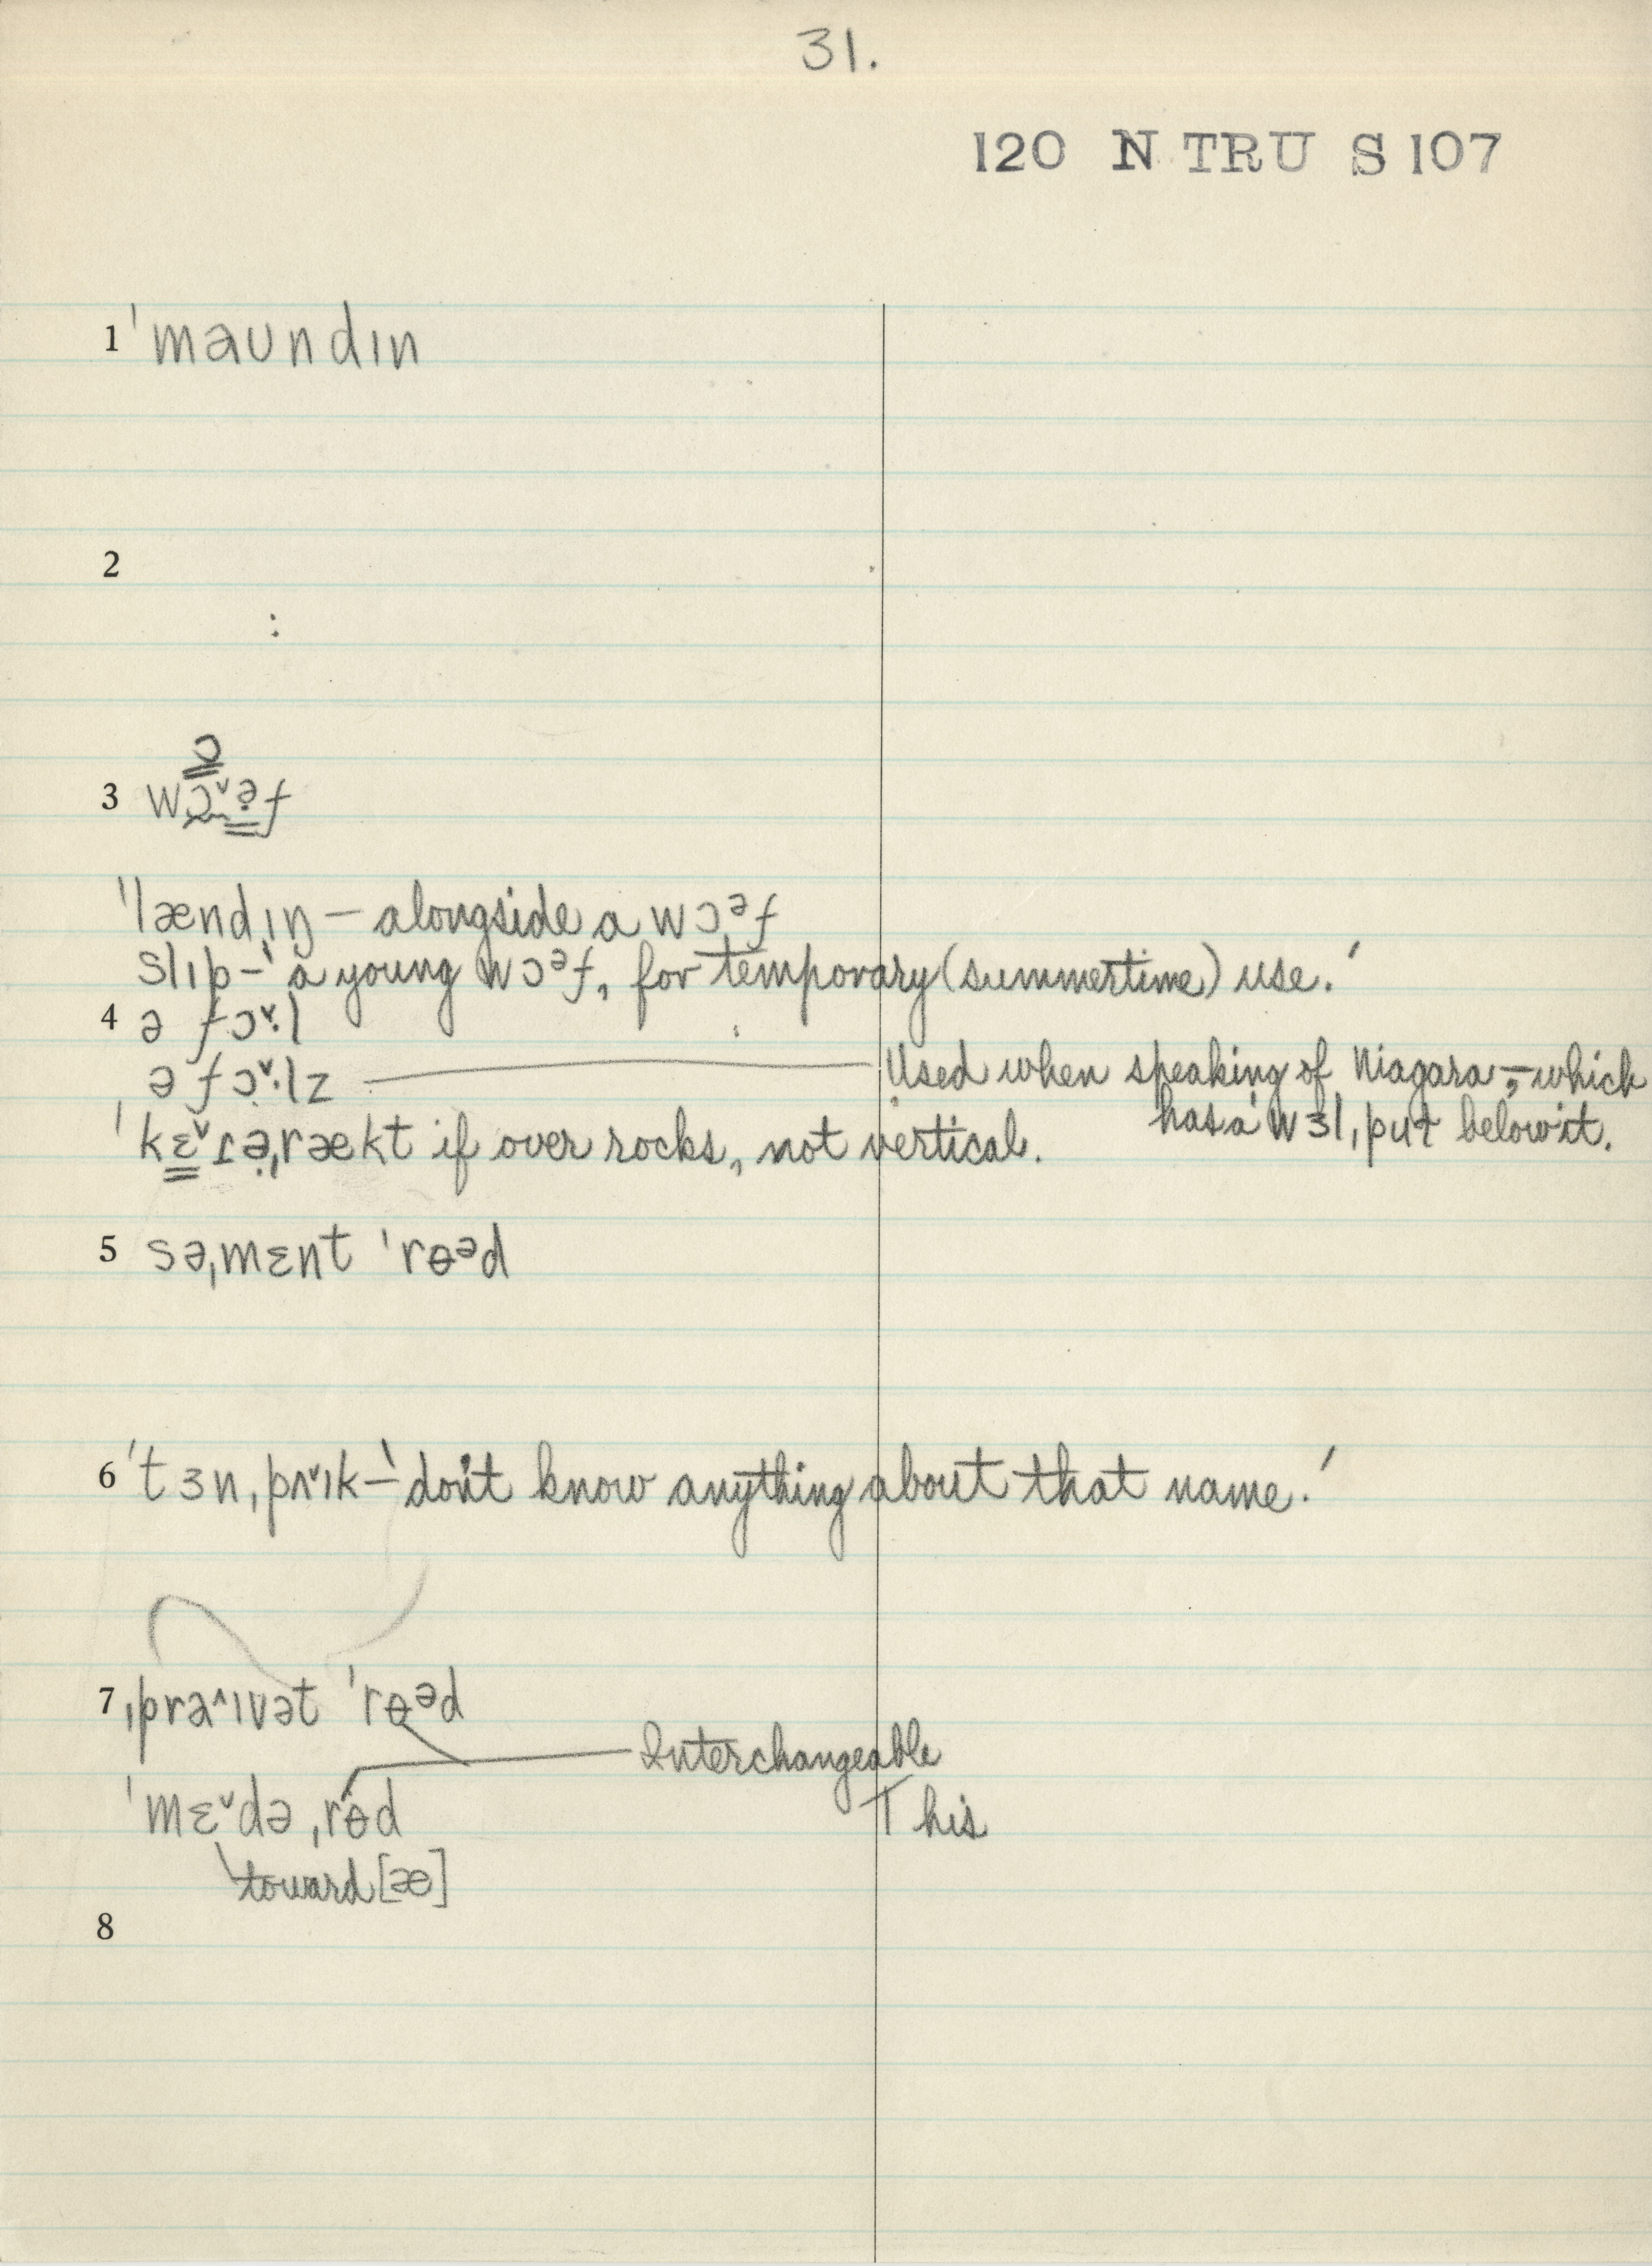 31.
120 N TRU S 107
1 ˈmaundɪn
2
ɔ
3 wɔ̰ˇə̣f
ˈlændɪŋ – alongside a wɔᵊf
slɪp – 'a young wɔᵊf, for temporary (summertime) use.'
4 ə fɔˇ·l
ə fɔˇ·lz Used when speaking of Niagara, – which
has a wɜl, put below it.
ˈkɛˇɾə̣ˌrækt if over rocks, not vertical.
5 səˌmɛnt ˈrɵᵊd
6 ˈtɜnˌpʌˇɪk – 'don't know anything about that name.'
7 ˌpraˆɪvət ˈrɵᵊd
Interchangeable
ˈmɛˇdə ˌrɵd This
toward [æ]
8